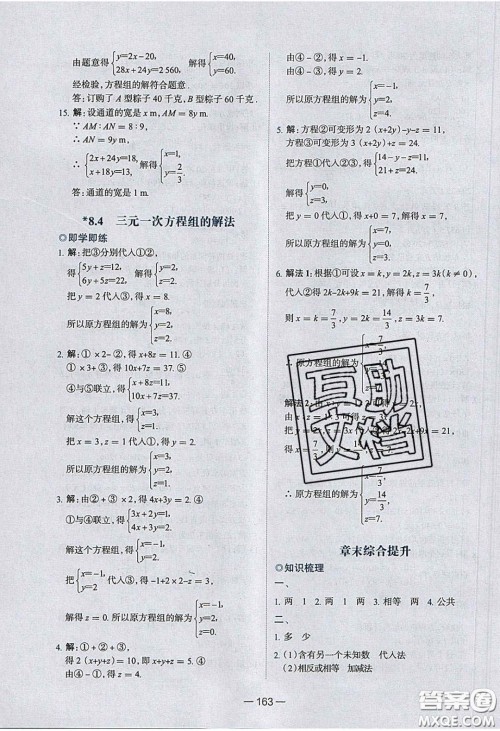 由题意得{y=2x-20, 28x+24y=2 560, 解得{x=40, y=60.
经检验,方程组的解符合题意.
答:订购了 A 型粽子 40 千克,B 型粽子 60 千克.
15. 解:设通道的宽是 x m,AM=8y m.
∵ AM:AN=8:9,
∴ AN=9y m.
∴ {2x+24y=18, x+18y=13, 解得{x=1, y=2/3.
答:通道的宽是 1 m.
*8.4 三元一次方程组的解法
◎即学即练
1. 解:把③分别代入①②,
得{5y+z=12, 6y+5z=22, 解得{y=2, z=2.
把 y=2 代入③,得 x=8.
所以原方程组的解为{x=8, y=2, z=2.
2. 解:①×2-②,得 x+8z=11. ④
①×3+③,得 10x+7z=37. ⑤
④与⑤联立,得{x+8z=11, 10x+7z=37.
解这个方程组,得{x=3, z=1.
把 x=3,z=1 代入①,得 y=2.
所以原方程组的解为{x=3, y=2, z=1.
3. 解:由②+③×2,得 4x+3y=2. ④
①与④联立,得{3x+2y=1, 4x+3y=2.
解这个方程组,得{x=-1, y=2.
把{x=-1, y=2 代入③,得 -1+2×2-z=3,
解得 z=0. 所以原方程组的解为{x=-1, y=2, z=0.
4. 解:①+②+③,
得 2(x+y+z)=10,即 x+y+z=5. ④
由④-①,得 z=2.
由④-②,得 x=1.
由④-③,得 y=2.
所以原方程组的解为{x=1, y=2, z=2.
5. 解:方程②可变形为 2(x+2y)-y-z=11,
方程③可变形为 3(x+2y)+z=21.
把方程①代入②③,得{14-y-z=11, 21+z=21.
解得{y=3, z=0.
把 y=3 代入①,得 x=1.
所以原方程组的解为{x=1, y=3, z=0.
6. 解法 1:根据①可设 x=k,y=2k,z=3k(k≠0),
代入②,得 2k-2k+9k=21,解得 k=7/3,
则 x=k=7/3,y=2k=14/3,z=3k=7.
∴ 原方程组的解为{x=7/3, y=14/3, z=7.
解法 2:
∴ 原方程组的解为{x=7/3, y=14/3, z=7.
章末综合提升
◎知识梳理
一、
1. 两 1 2. 两 1 两 3. 相等 两 4. 公共
二、
1. 多 少
2. (1)含有另一个未知数 代入法
(2)相反或相等 加减法
— 163 —
互助文档
答案圈
MXQE.COM